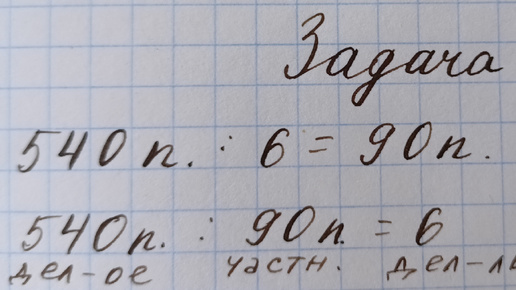 Задача
540 п. : 6 = 90 п.
540 п. : 90 п. = 6
дел-ое частн. дел-ль